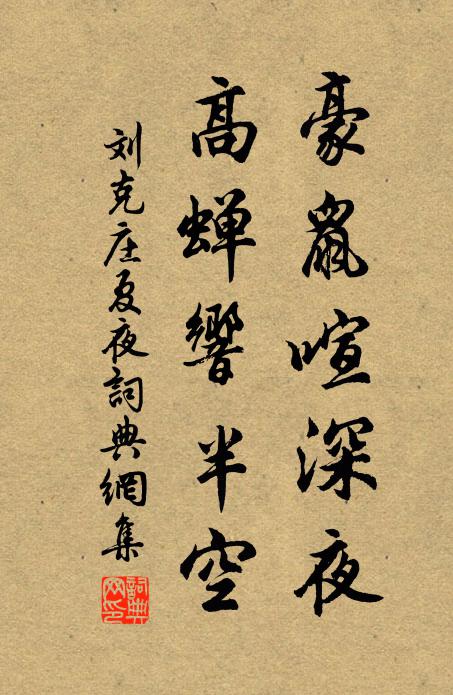 豪鼠喧深夜
高蝉響半空
刘克庄夏夜詞典網集
詞典
网印